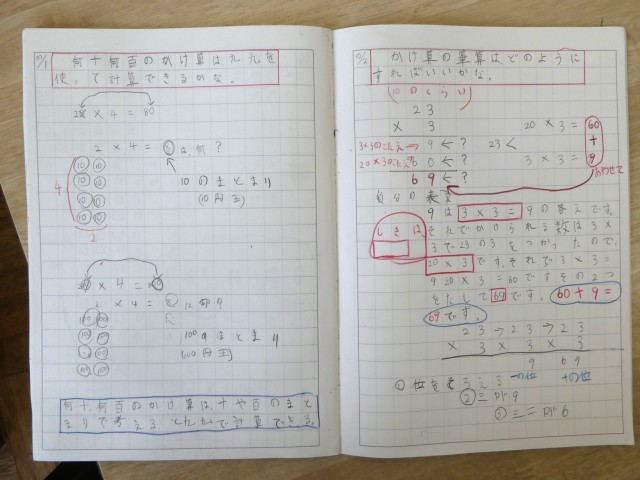 何十何百のかけ算は九九を
使って計算できるかな。
20 × 4 = 80
2 × 4 = 8は、何?
10 10
10 10
10 10
10 10
4
2
10のまとまり
(10円玉)
× 4 =
2 × 4 =
100のまとまり
(100円玉)
何十、何百のかけ算は、十や百のまと
まりで考える
かけ算の筆算はどのように
すればいいかな。
(10のくらい)
23
× 3
3×3のこたえ→ 9 ←?
20×3のこたえ 60 ←?
69 ←?
23 <
20 × 3 = 60
+
3 × 3 = 9
あわせて
自分の考え
しきは
9は 3×3= 9の答えです。
それでかけられる数は3×
3で23の3をつかったので、
20×3です。それで3×3=
9 20×3=60ですその2つ
をたして69です。 60+9=
69です。
23→23→23
× 3 × 3 × 3
9 69
一の位 十の位
①位をそろえる
②三三が9
③三二が6